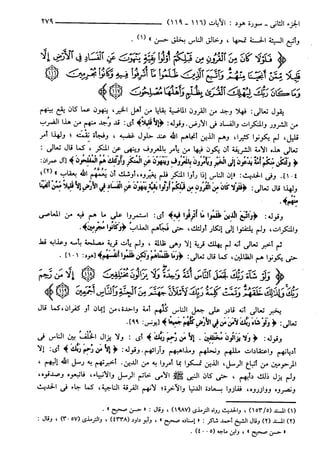 الجزء الثانى - سورة هود : الآيات (١١٦ - ١١٩) ـــــــــ ٢٧٩
وأتبع السيئة الحسنة تمحها ، وخالق الناس بخلق حسن » (١) .
﴿ فَلَوْلَا كَانَ مِنَ الْقُرُونِ مِن قَبْلِكُمْ أُولُوا بَقِيَّةٍ يَنْهَوْنَ عَنِ الْفَسَادِ فِي الْأَرْضِ إِلَّا
قَلِيلًا مِّمَّنْ أَنجَيْنَا مِنْهُمْ وَاتَّبَعَ الَّذِينَ ظَلَمُوا مَا أُتْرِفُوا فِيهِ وَكَانُوا مُجْرِمِينَ
وَمَا كَانَ رَبُّكَ لِيُهْلِكَ الْقُرَىٰ بِظُلْمٍ وَأَهْلُهَا مُصْلِحُونَ ﴾
يقول تعالى : فهلا وجد من القرون الماضية بقايا من أهل الخير، ينهون عما كان يقع بينهم
من الشرور والمنكرات والفساد فى الأرض. وقوله: ﴿إلا قليلا﴾ أى: قد وجد منهم من هذا الضرب
قليل، لم يكونوا كثيرا، وهم الذين أنجاهم الله عند حلول غضبه ، وفجأة نقمته ، ولهذا أمر
تعالى هذه الأمة الشريفة أن يكون فيها من يأمر بالمعروف وينهى عن المنكر ، كما قال تعالى :
﴿ ولتكن منكم أمة يدعون إلى الخير ويأمرون بالمعروف وينهون عن المنكر وأولئك هم المفلحون ﴾ [آل عمران:
١٠٤]. وفى الحديث: «إن الناس إذا رأوا المنكر فلم يغيروه، أوشك أن يعمهم الله بعقاب » (٢)
ولهذا قال تعالى : ﴿فلولا كان من القرون من قبلكم أولوا بقية ينهون عن الفساد في الأرض إلا قليلا ممن أنجينا
منهم﴾ .
وقوله: ﴿واتبع الذين ظلموا ما أترفوا فيه﴾ أى: استمروا على ما هم فيه من المعاصى
والمنكرات، ولم يلتفتوا إلى إنكار أولئك، حتى فجأهم العذاب ﴿وكانوا مجرمين﴾ .
ثم أخبر تعالى أنه لم يهلك قرية إلا وهى ظالمة ، ولم يأت قرية مصلحة بأسه وعذابه قط
حتى يكونوا هم الظالمين، كما قال تعالى: ﴿وما ظلمناهم ولكن ظلموا أنفسهم﴾ [هود: ١٠١] .
﴿ وَلَوْ شَاءَ رَبُّكَ لَجَعَلَ النَّاسَ أُمَّةً وَاحِدَةً وَلَا يَزَالُونَ مُخْتَلِفِينَ إِلَّا مَن رَّحِمَ
رَبُّكَ وَلِذَٰلِكَ خَلَقَهُمْ وَتَمَّتْ كَلِمَةُ رَبِّكَ لَأَمْلَأَنَّ جَهَنَّمَ مِنَ الْجِنَّةِ وَالنَّاسِ أَجْمَعِينَ ﴾
يخبر تعالى أنه قادر على جعل الناس كلهم أمة واحدة، من إيمان أو كفران، كما قال
تعالى: ﴿ ولو شاء ربك لآمن من في الأرض كلهم جميعا ﴾ [يونس: ٩٩].
وقوله: ﴿ولا يزالون مختلفين . إلا من رحم ربك﴾ أى: ولا يزال الخلف بين الناس فى
أديانهم واعتقادات مللهم ونحلهم ومذاهبهم وآرائهم. وقوله: ﴿إلا من رحم ربك﴾ أى: إلا
المرحومين من أتباع الرسل، الذين تمسكوا بما أمروا به من الدين. أخبرتهم به رسل الله إليهم ،
ولم يزل ذلك دأبهم ، حتى كان النبى ﷺ الأمى خاتم الرسل والأنبياء، فاتبعوه وصدقوه،
ونصروه ووازروه، ففازوا بسعادة الدنيا والآخرة؛ لأنهم الفرقة الناجية، كما جاء فى الحديث
(١) المسند (٥/ ١٥٣) ، والحديث رواه الترمذى (١٩٨٧) ، وقال : « حسن صحيح » .
(٢) المسند (٢) وقال الشيخ أحمد شاكر : « إسناده صحيح » وأبو داود (٤٣٣٨) ، والترمذى (٣٠٥٧) وقال:
« حسن صحيح » ، وابن ماجه (٤٠٠٥) .